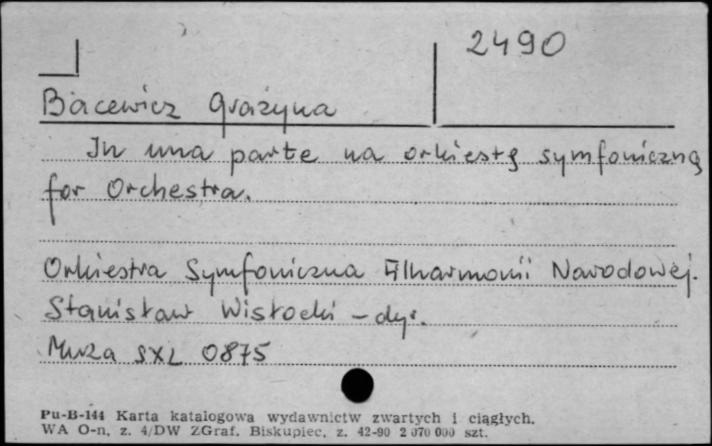 2490
Bacewicz Grażyna
In una parte na orkiestę symfoniczną
for Orchestra.
Orkiestra Symfoniczna Filharmonii Narodowej.
Stanisław Wisłocki – dyr.
Muza SXL 0875
Pu-B-144 Karta katalogowa wydawnictw zwartych i ciągłych.
WA O-n, z. 4/DW ZGraf. Biskupiec, z. 42-90 2 070 000 szt.